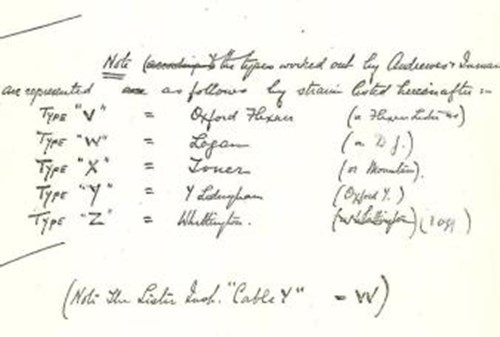 Note (according to the types worked out by Andrewes & Inman
are represented as follows by strain listed hereinafter :-
TYPE "V" = Oxford Flexner (or Flexner Lister
TYPE "W" = Logan (or D. J.)
TYPE "X" = Toner (or Mountain).
TYPE "Y" = Y Ledingham (Oxford Y.)
TYPE "Z" = Whittington. (or Whittington)
(Note The Lister Inst. "Cable Y" = VV)